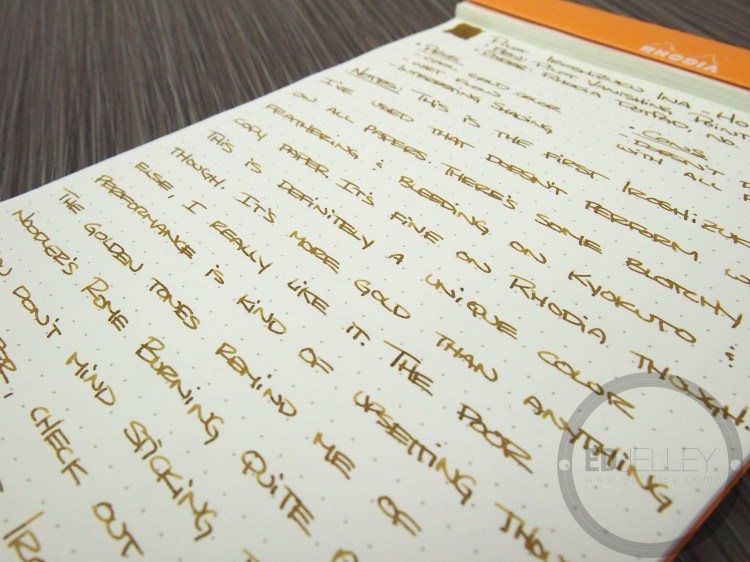 RHODIA
Pilot Iroshizuku Ina-Ho
Pen: Pilot Vanishing Point
Paper: Rhodia DotPad, No
Pros:
- Cool gold color
- Wet flow
- Interesting shading
Cons:
- Doesn't p
with all p
Notes: This is the first Iroshizu
I've used that doesn't perform w
on all papers. There's some blotchy
feathering & bleeding on Kyokuto &
copy paper. It's fine on Rhodia though.
This is definitely a unique color
though, it's more gold than anything
else, I really like it. The poor
performance is kind of upsetting thou
the golden tones remind me of
Noodler's Rome Burning quite a
ou don't mind sticking
per, check out
Iro
EDJELLEY
www.edjelley.com